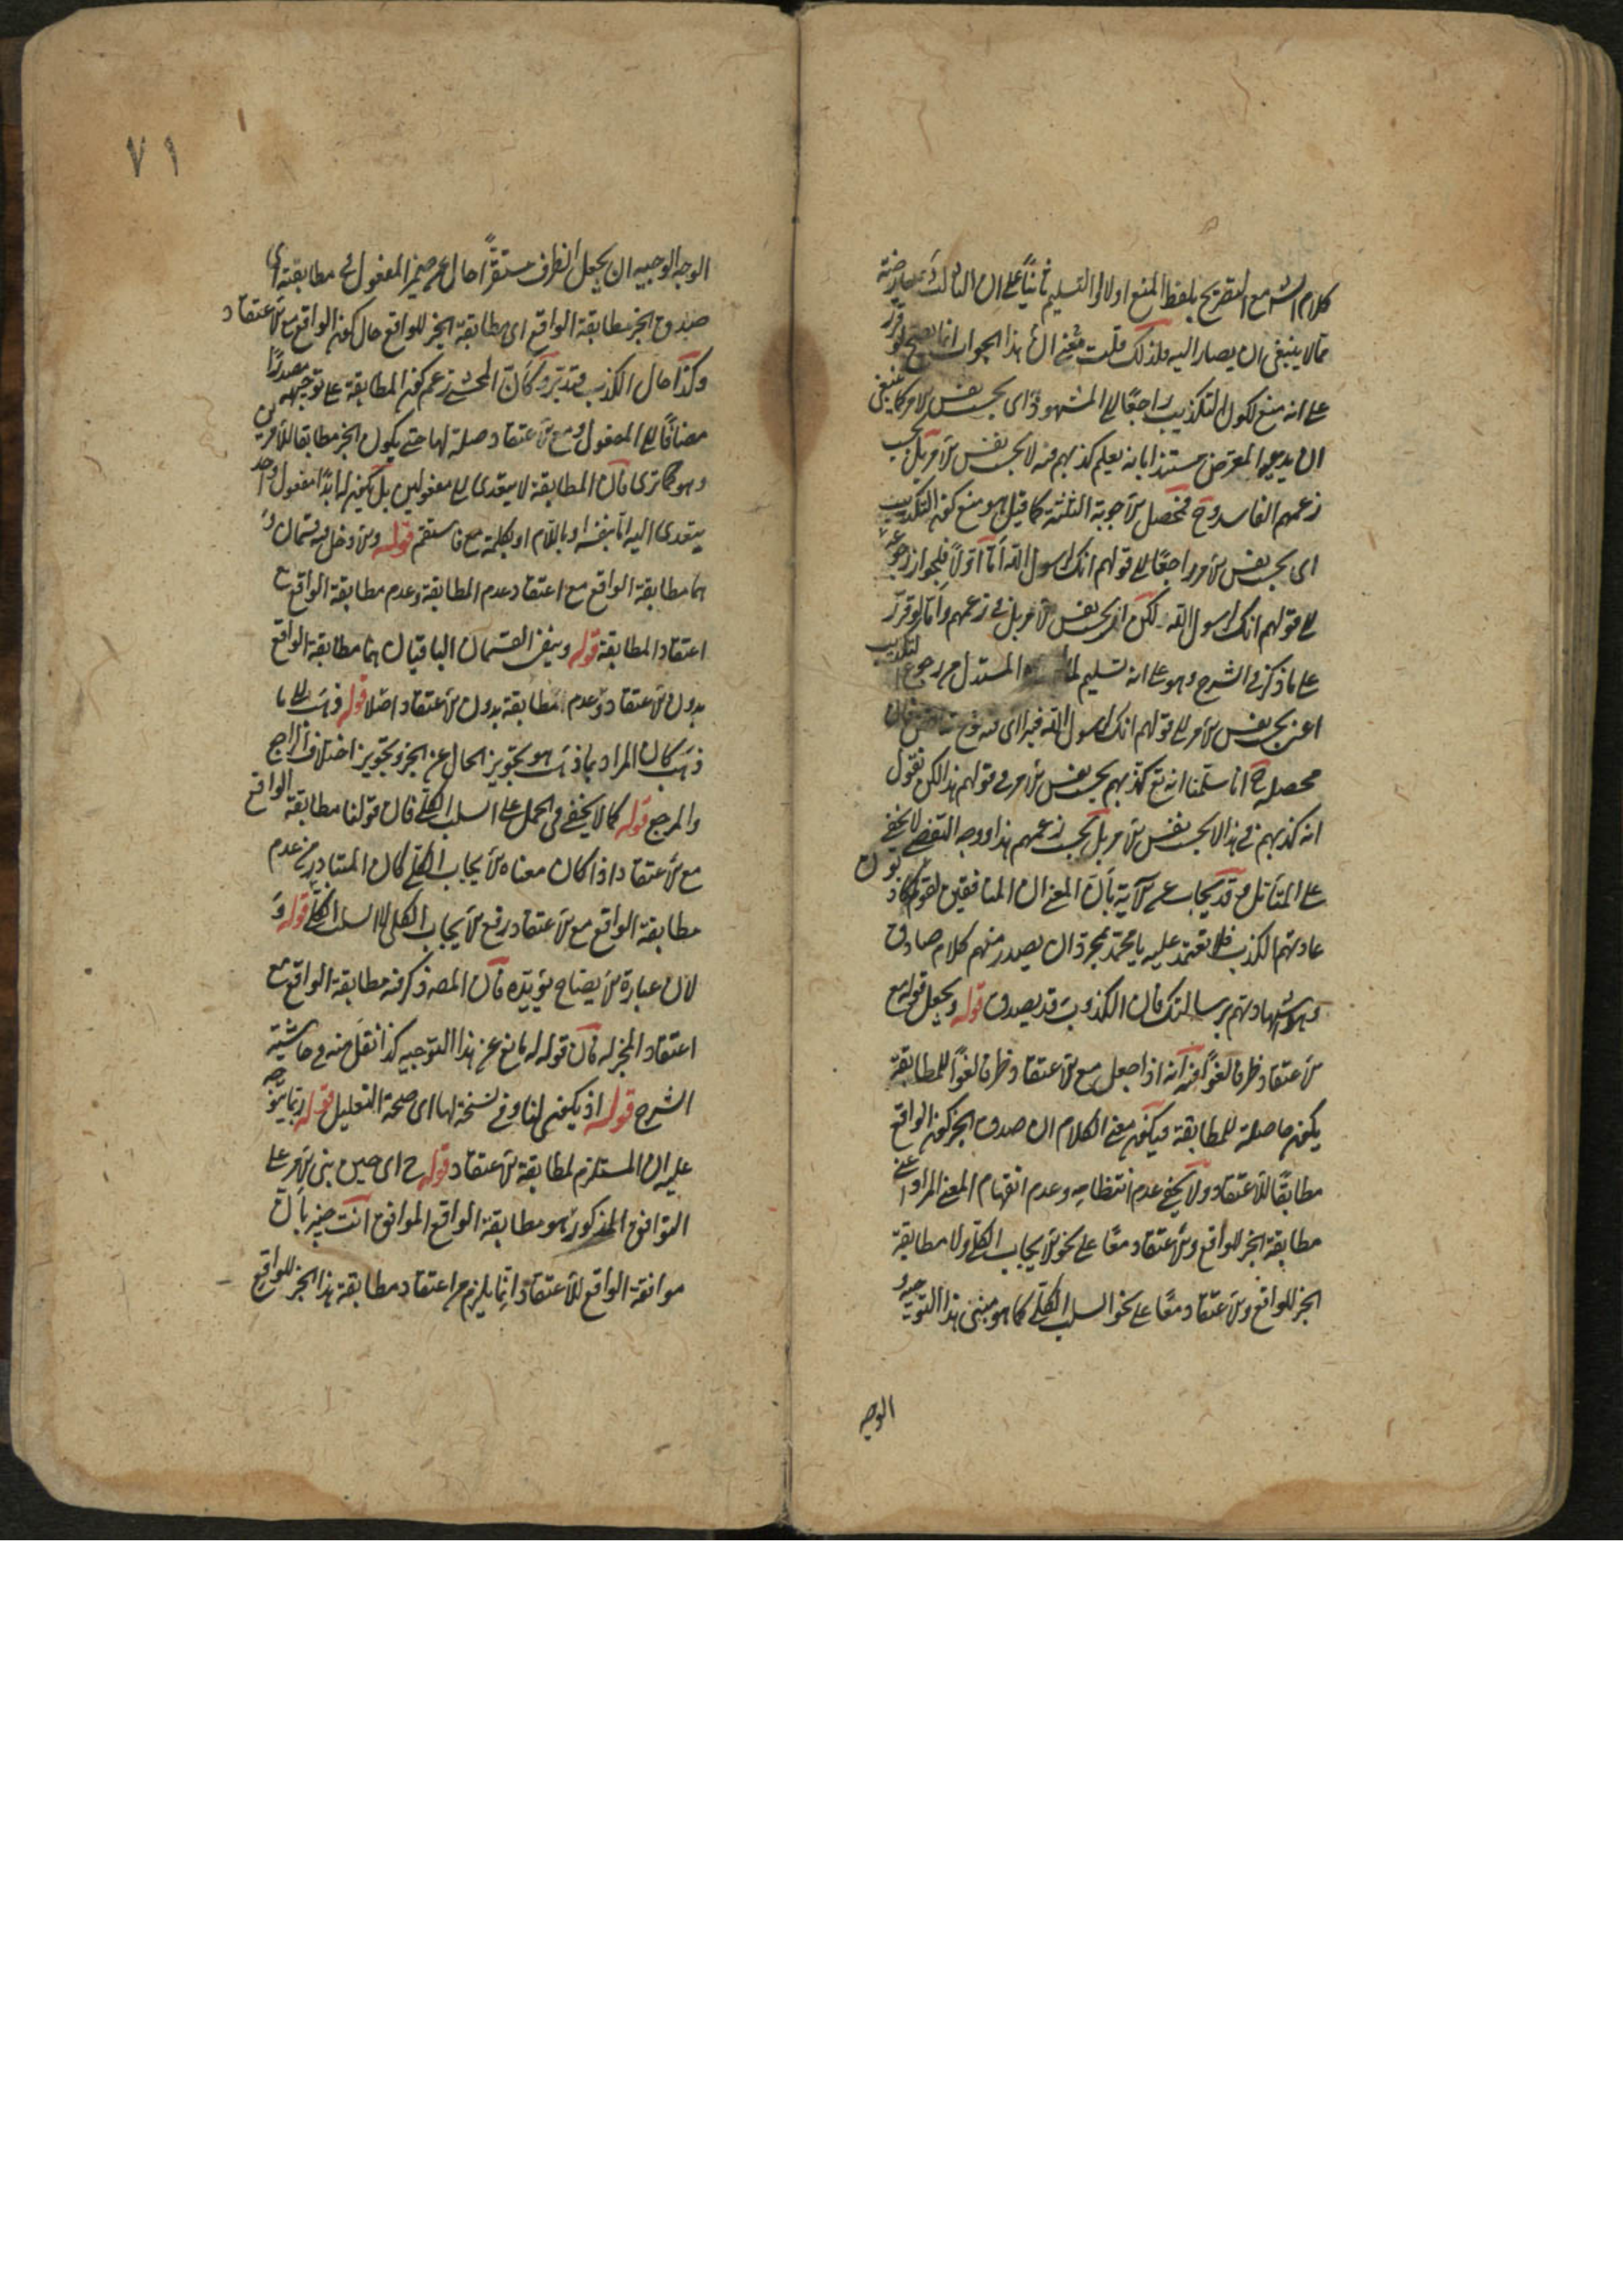 كلام الش مع التصريح بلفظ المنع اولا والتسليم ثانيا على ان الثالث معارضة
مما لا ينبغي ان يصار اليه ولذلك قلت معنى ان هذا الجواب انما يصح لو قرر
على انه منع لكون التكذيب راجعا الى المشهود به اى بحسب نفس الامر كما ينبغي
ان يدعيه المعترض مستندا بانه يعلم كذبهم فيه لا بحسب نفس الامر بل بحسب
زعمهم الفاسد وح فمحصل الاجوبة الثلثة كما قيل هو منع كون التكذيب
اى بحسب نفس الامر راجعا الى قولهم انك لرسول الله اما اولا فلجواز رجوعه
الى قولهم انك لرسول الله لكن لا بحسب نفس الامر بل في زعمهم واما لو قرر
على ما ذكر في الشرح وهو على انه تسليم لما المستدل من رجوع التكذيب
اعنى بحسب نفس الامر الى قولهم انك لرسول الله فيرا اى فيه فان
محصله ح انا سلمنا انه تع كذبهم بحسب نفس الامر في قولهم هذا لكن نقول
انه كذبهم في هذا لا بحسب نفس الامر بل بحسب زعمهم هذا ووجه التفصى لا يخفى
على المتأمل وقد يجاب عن الآية بأن المعنى ان المنافقين لقوم كاذبون
عادتهم الكذب فلا تعتمد عليهم يا محمد بمجرد ان يصدر منهم كلام صادق
وهو شهادتهم برسالتك فان الكذوب قد يصدق قوله ويجعل قوله مع
الاعتقاد ظرفا لغوا فيه انه اذا جعل مع الاعتقاد ظرفا لغوا للمطابقة
يكون حاصلة للمطابقة فيكون معنى الكلام ان صدق الخبر كون الواقع
مطابقا للاعتقاد ولا يخفى عدم انتظامه وعدم انفهام المعنى المراد اعنى
مطابقة الخبر للواقع والاعتقاد معا على نحو الايجاب الكلى ولا مطابقة
الخبر للواقع والاعتقاد معا على نحو السلب الكلى كما هو مبنى هذا التوجيه و
الوجه
٧١
الوجه الوجيه ان يجعل الظرف مستقرا حالا عن ضمير المفعول في مطابقته اى
صدق الخبر مطابقة الواقع اى مطابقة الخبر للواقع حال كون الواقع مع الاعتقاد
وكذا حال الكذب فتدبر وكأن المحشى زعم كون المطابقة على توجيهه مصدرا
مضافا الى المفعول ومع الاعتقاد صلة لها حتى يكون الخبر مطابقا للامرين
وهو كما ترى فان المطابقة لا يتعدى الى مفعولين بل يكون لها ابدا مفعول واحد
يتعدى اليه اما بنفسه او باللام او بكلمة مع فاستقم قوله والاول دخل فيه قسمان و
هما مطابقة الواقع مع اعتقاد عدم المطابقة وعدم مطابقة الواقع مع
اعتقاد المطابقة قوله وبقى القسمان الباقيان هما مطابقة الواقع
بدون الاعتقاد وعدم المطابقة بدون الاعتقاد اصلا قوله ذهب الى ما
ذهب كان المراد بما ذهب هو تجويز الحال عن الخبر وتجويز اختلاف الراجع
والمرجع قوله كما لا يخفى في الحمل على السلب الكلى فان قولنا مطابقة الواقع
مع الاعتقاد اذا كان معناه الايجاب الكلى كان المتبادر من عدم
مطابقة الواقع مع الاعتقاد رفع الايجاب الكلى لا السلب الكلى قوله و
لان عبارة الايضاح يؤيده فان المص ذكر فيه مطابقة الواقع مع
اعتقاد المخبر له فان قوله له مانع عن هذا التوجيه كذا نقل منه في حاشية
الشرح قوله اذ يكون لنا وفي نسخة لها اى صحة التعليل قوله ربما يتوجه
عليه ان المستلزم لمطابقة الاعتقاد قوله ح اى حين بنى الامر على
التوافق المذكور هو مطابقة الواقع الموافق انت خبير بأن
موافقة الواقع للاعتقاد انما يلزم من اعتقاد مطابقة هذا الخبر للواقع